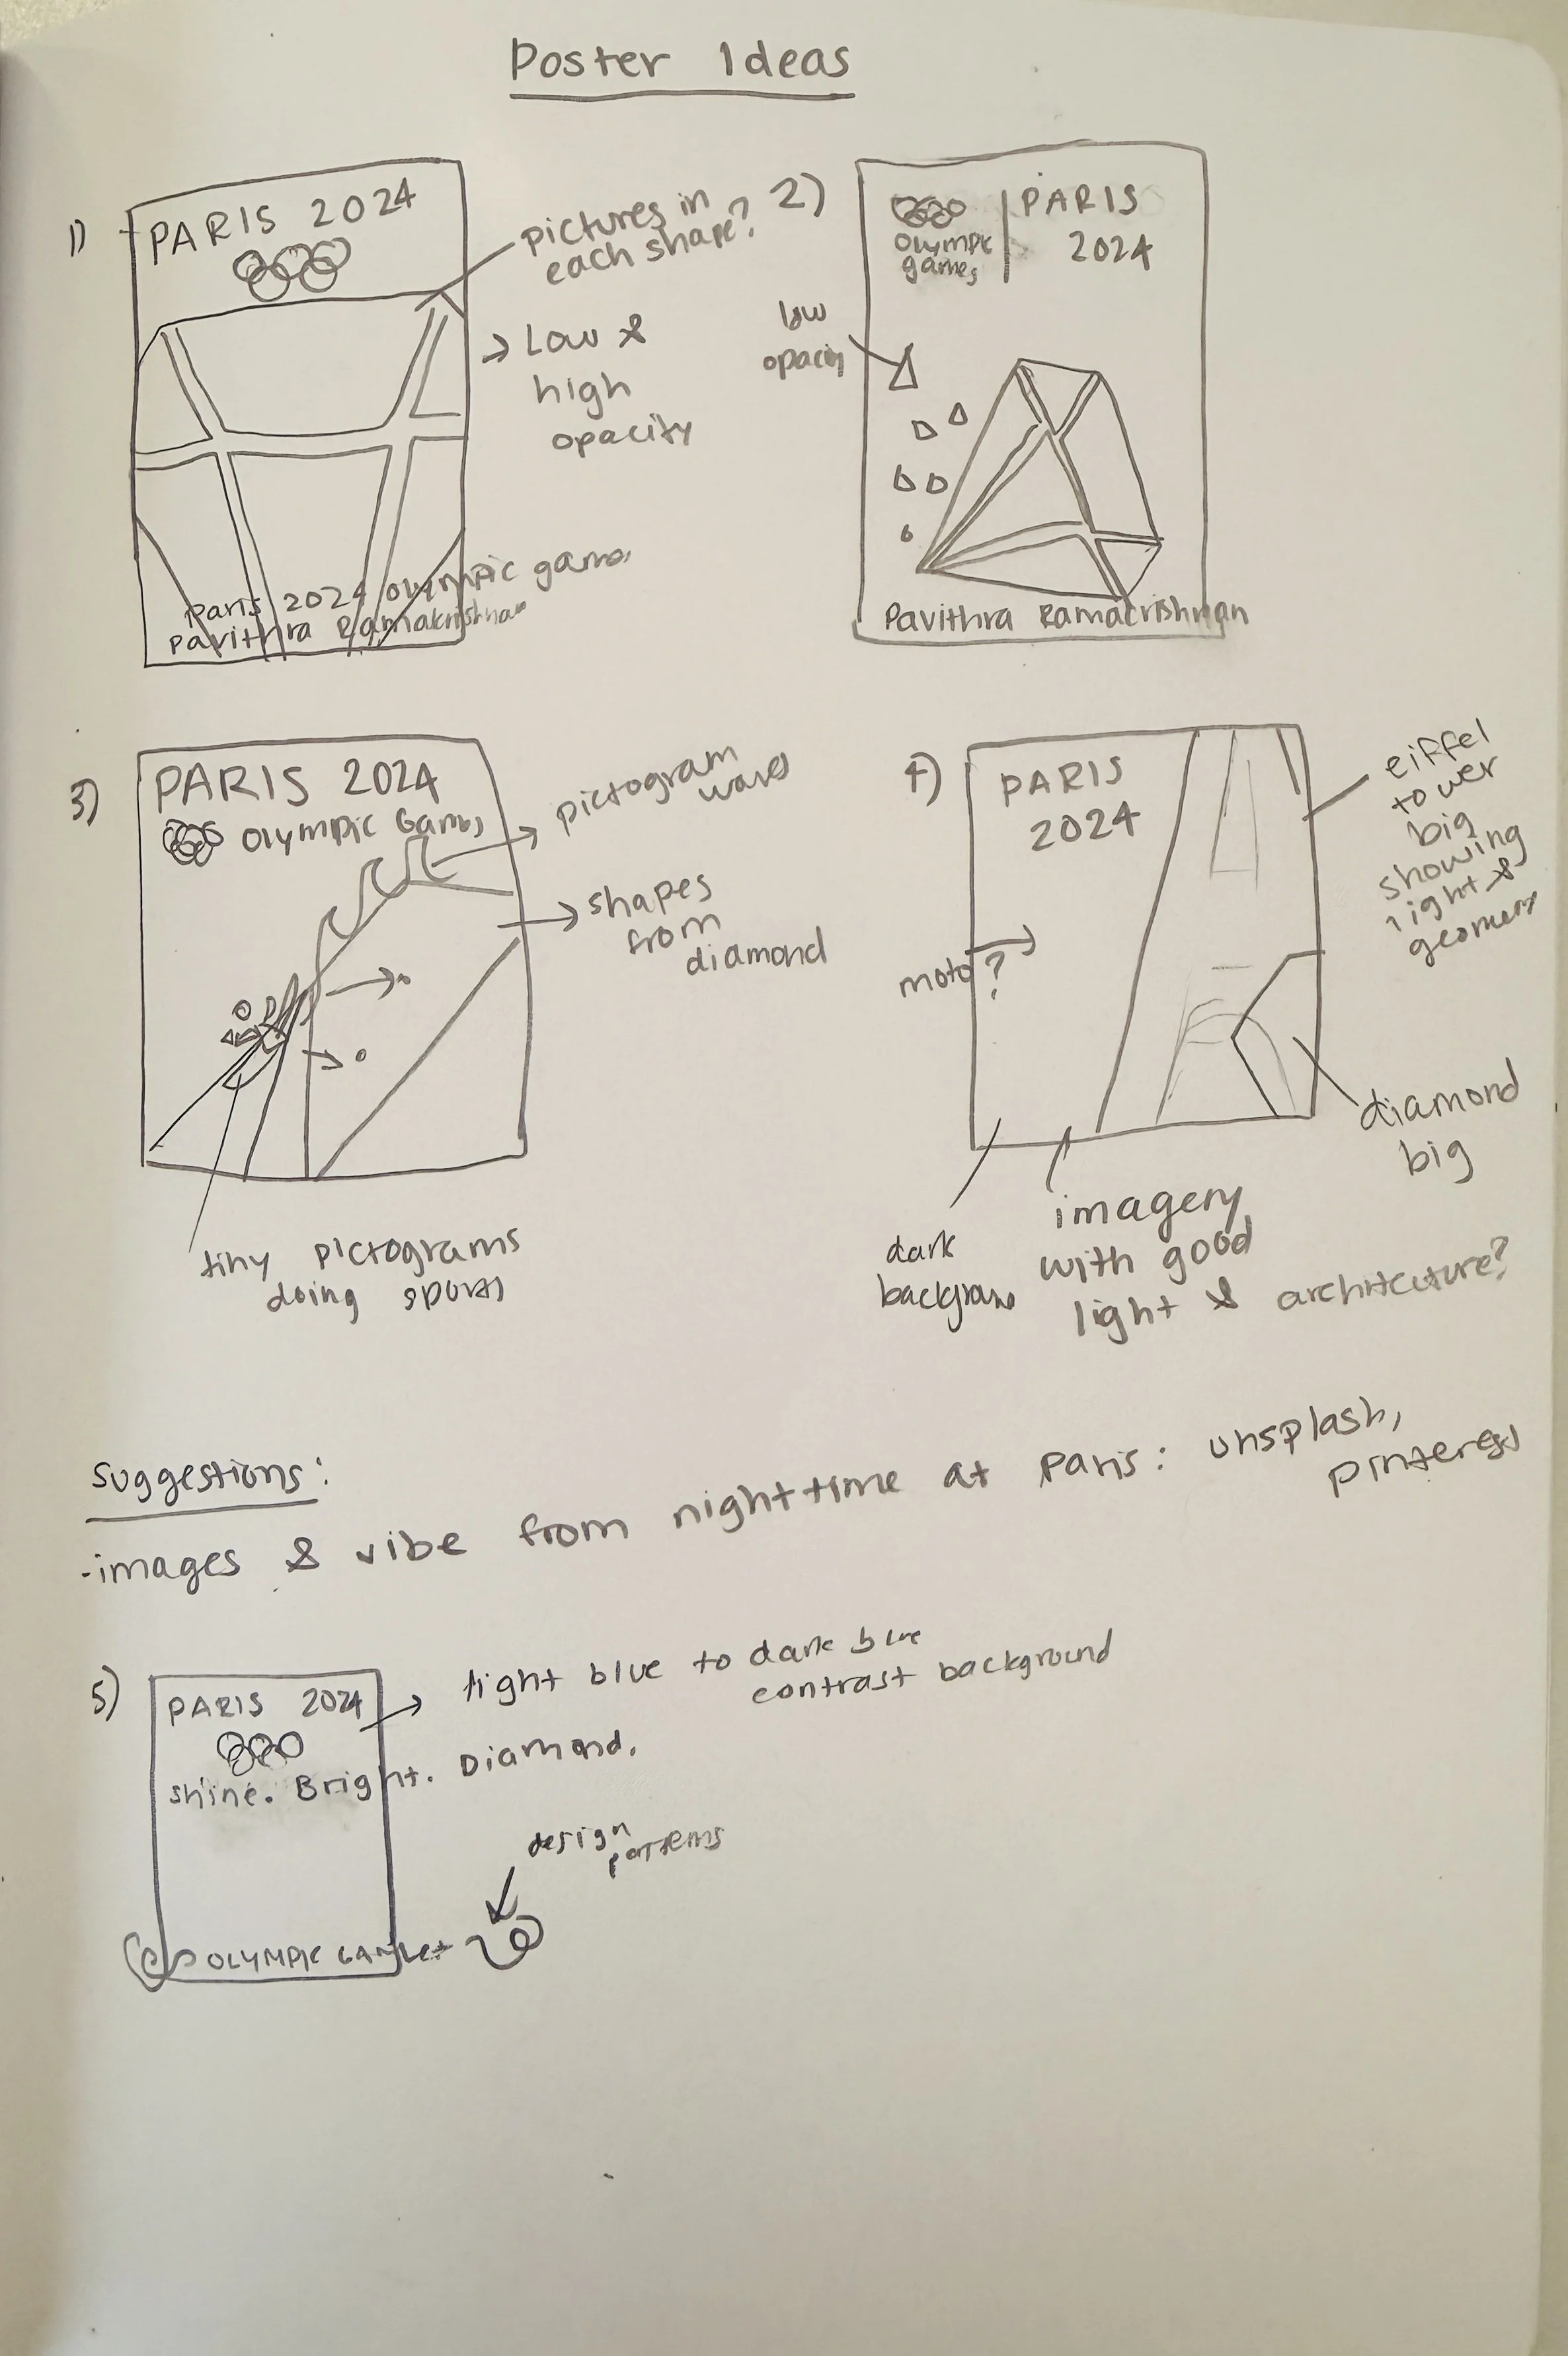 Poster Ideas
1)
PARIS 2024
pictures in
each shape?
→ Low &
high
opacity
Paris 2024 Olympic games
Pavithra Ramakrishnan
2)
Olympic
games
PARIS
2024
low
opacity
Pavithra Ramacrishnan
3)
PARIS 2024
Olympic Games
pictogram
waves
shapes
from
diamond
tiny pictograms
doing sports
4)
PARIS
2024
moto?
eiffel
tower
big
showing
light &
geometry
diamond
big
dark
imagery
with good
light & architecture?
suggestions:
- images & vibe from nighttime at Paris: unsplash,
pinterest
5)
PARIS 2024
light blue to dark blue
contrast background
shine. Bright. Diamond.
design
patterns
OLYMPIC